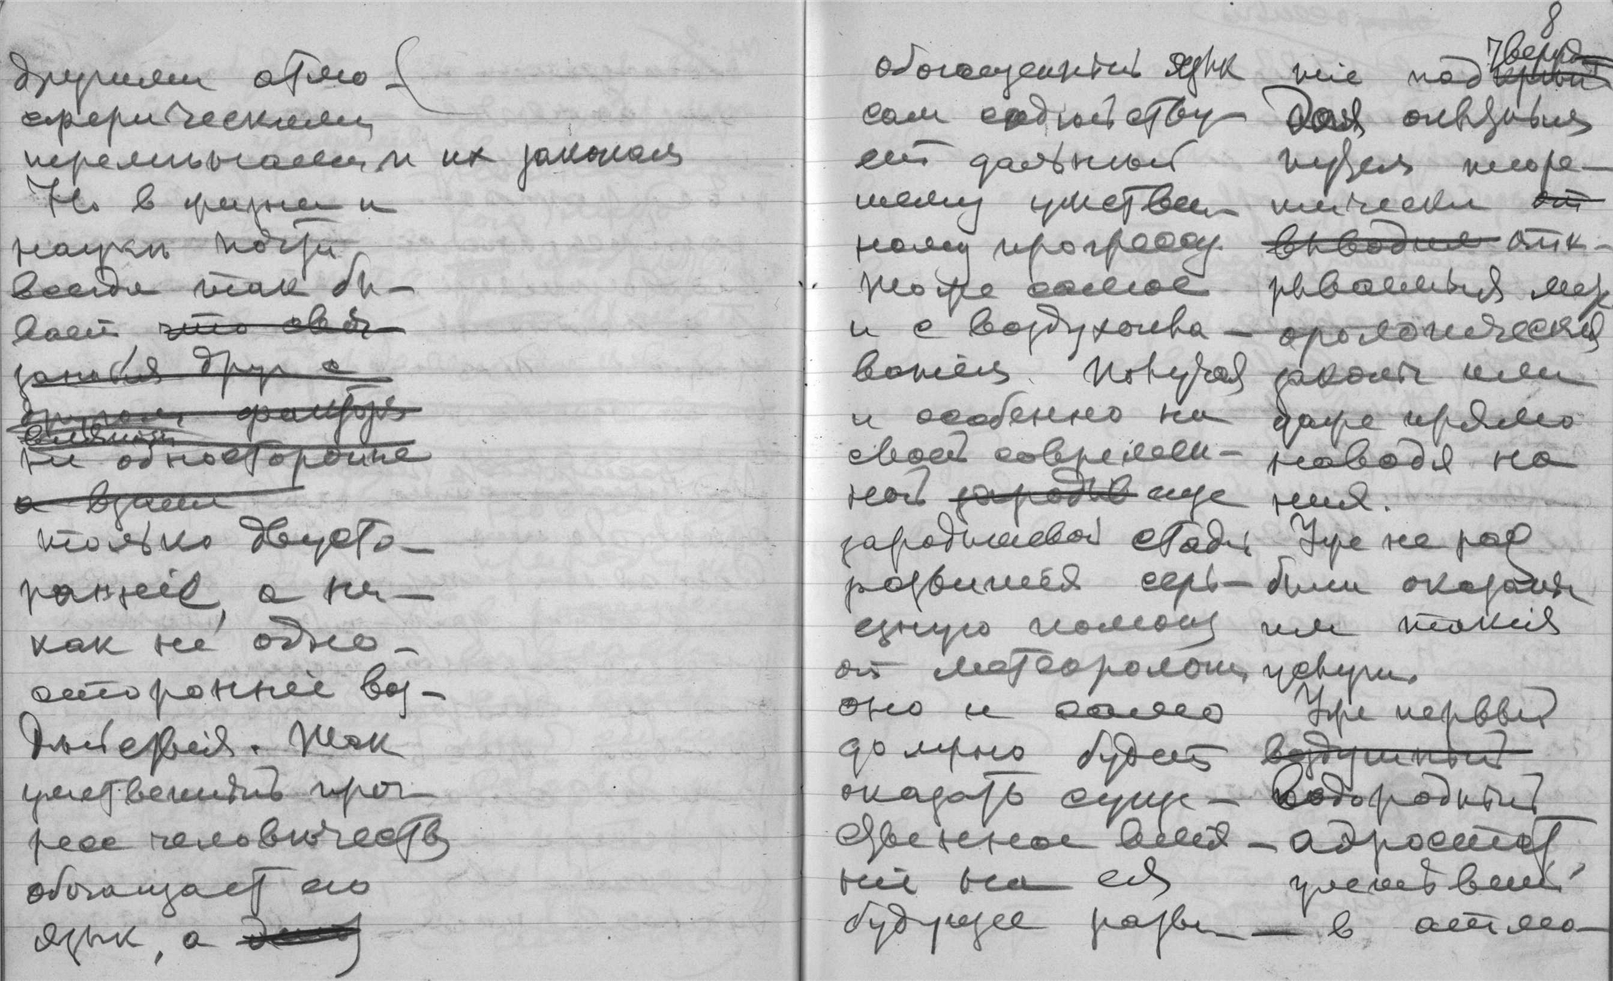 другими атмо-
сферическими
перемычками и их законам
Но в физике и
науки почти
всегда так бы-
ваетъ что связь
занятія друг с
другом, факторъ
вліянія
не односторонне
а взаим
только двусто-
роннее, а ни-
как не одно-
стороннее воз-
дѣйствія. Так
умственный прог-
ресс человѣчества
обогащает его
язык, а
8
обогащенный язык
сам содѣйству-
ет дальнѣй
шему умствен-
ному прогрессу.
Тоже самое
и с воздухопла-
ваніем. Получая
и особенно на
своей современ-
ной зародыв еще
зародышевой стадіи
развитія серь-
езную помощь
от метеорологіи,
оно и само
должно будет
оказать суще-
ственное влія-
ніе на ея
будущее разви-
тверд
тіе подтверд
дая опытным
путем теоре-
тически от
выводимя отк-
рываемыя мете
орологическія
законы или
даже прямо
наводя на
ния.
Уже не раз
были оказаны
им такія
услуги.
Уже первый
воздушный
водородный
аэростат,
в атмо-